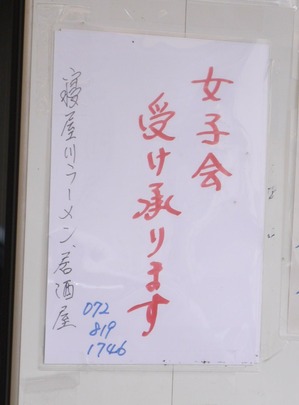 女子会
受け承ります
寝屋川ラーメン、居酒屋
072
819
1746